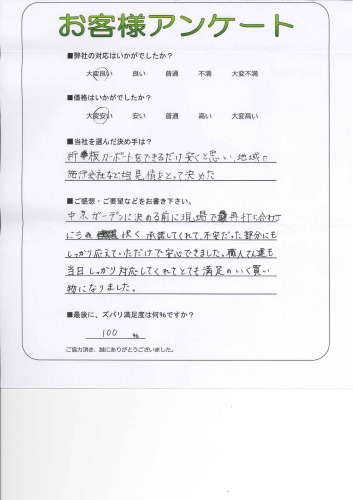 お客様アンケート
■弊社の対応はいかがでしたか？
大変良い 良い 普通 不満 大変不満
■価格はいかがでしたか？
大変安い 安い 普通 高い 大変高い
■当社を選んだ決め手は？
カーポートをできるだけ安くと思い、地域の
施行会社など相見積をとって決めた
■ご感想・ご要望などをお書き下さい。
中京ガーデンに決める前に現場で再打ち合わせ
にも 快く 承諾してくれて、不安だった部分にも
しっかり応えていただけで安心できました。職人さん達も
当日しっかり対応してくれてとても満足のいく買い
物になりました。
■最後に、ズバリ満足度は何％ですか？
100 %
ご協力頂き、誠にありがとうございました。